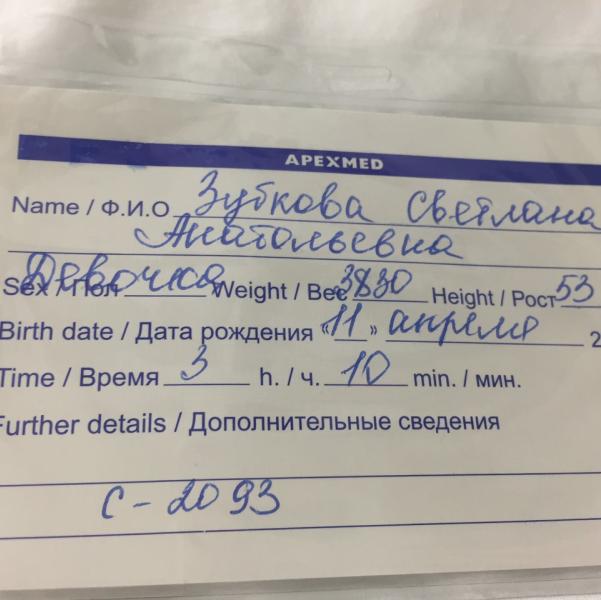 APEXMED
Name / Ф.И.О Зубкова Светлана
Анатольевна
Sex / Пол Девочка Weight / Вес 3830 Height / Рост 53
Birth date / Дата рождения «11» апреля 2
Time / Время 3 h. / ч. 10 min. / мин.
Further details / Дополнительные сведения
С-2093